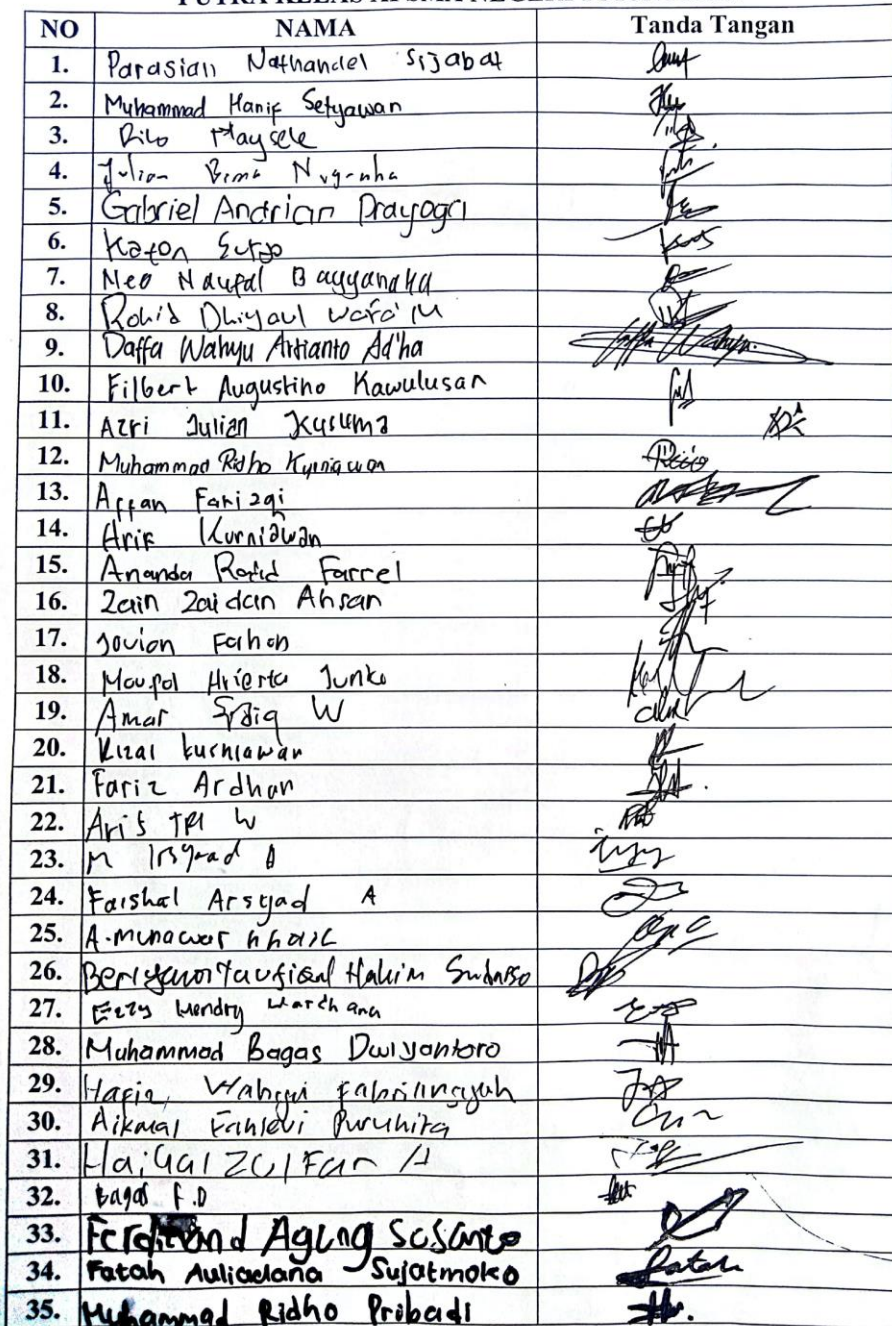 PUTRA KELAS XI SMA NEGERI
NO NAMA Tanda Tangan
1. Parasian Nathanael Sijabat
2. Muhammad Hanif Setyawan
3.
4. Julian Bima Nugraha
5. Gabriel Andrian Prayoga
6. Katon Suryo
7. Neo Naufal Bayyanaka
8. Rohid Dhiyaul
9. Daffa Wahyu Artianto Ad'ha
10. Filbert Augustino Kawulusan
11. Azri Julian Kusuma
12. Muhammad Ridho Kurniawan
13. Affan Farizqi
14. Arif Kurniawan
15. Ananda Rafid Farrel
16. Zain Zaidan Ahsan
17. Jovian Fahon
18. Junko
19. Amar W
20. Rizal kurniawan
21. Fariz Ardhan
22. Aris TRI W
23. M Irsyad A
24. Faishal Arsyad A
25. A. munawar khalil
26. Hakim Sudarso
27. Ezzy Hendry Wardhana
28. Muhammad Bagas Dwiyantoro
29. Hafiz Wahyu
30. Aikmal Fahlevi Puruhita
31. Haiqal Zulfan A
32. Bagas F.D
33. Ferdinand Agung Susanto
34. Fatah Auliadana Sujatmoko Fatah
35. Muhammad Ridho Pribadi